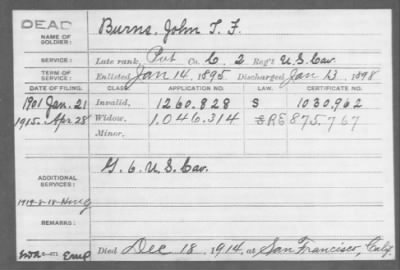 DEAD
NAME OF SOLDIER:
Burns, John T. F.
SERVICE:
Late rank, Pvt Co. C, 2 Reg't U.S. Cav.
TERM OF SERVICE:
Enlisted Jan 14, 1895 Discharged Jan 13, 1898
DATE OF FILING. CLASS. APPLICATION NO. LAW. CERTIFICATE NO.
1901 Jan. 21 Invalid, 1260.828 S 1030,962
1915. Apr 28 Widow, 1,046.314 875,767
Minor,
ADDITIONAL SERVICES:
G. 6 U.S. Cav.
REMARKS:
Died Dec 18, 1914, at San Francisco, Calif.